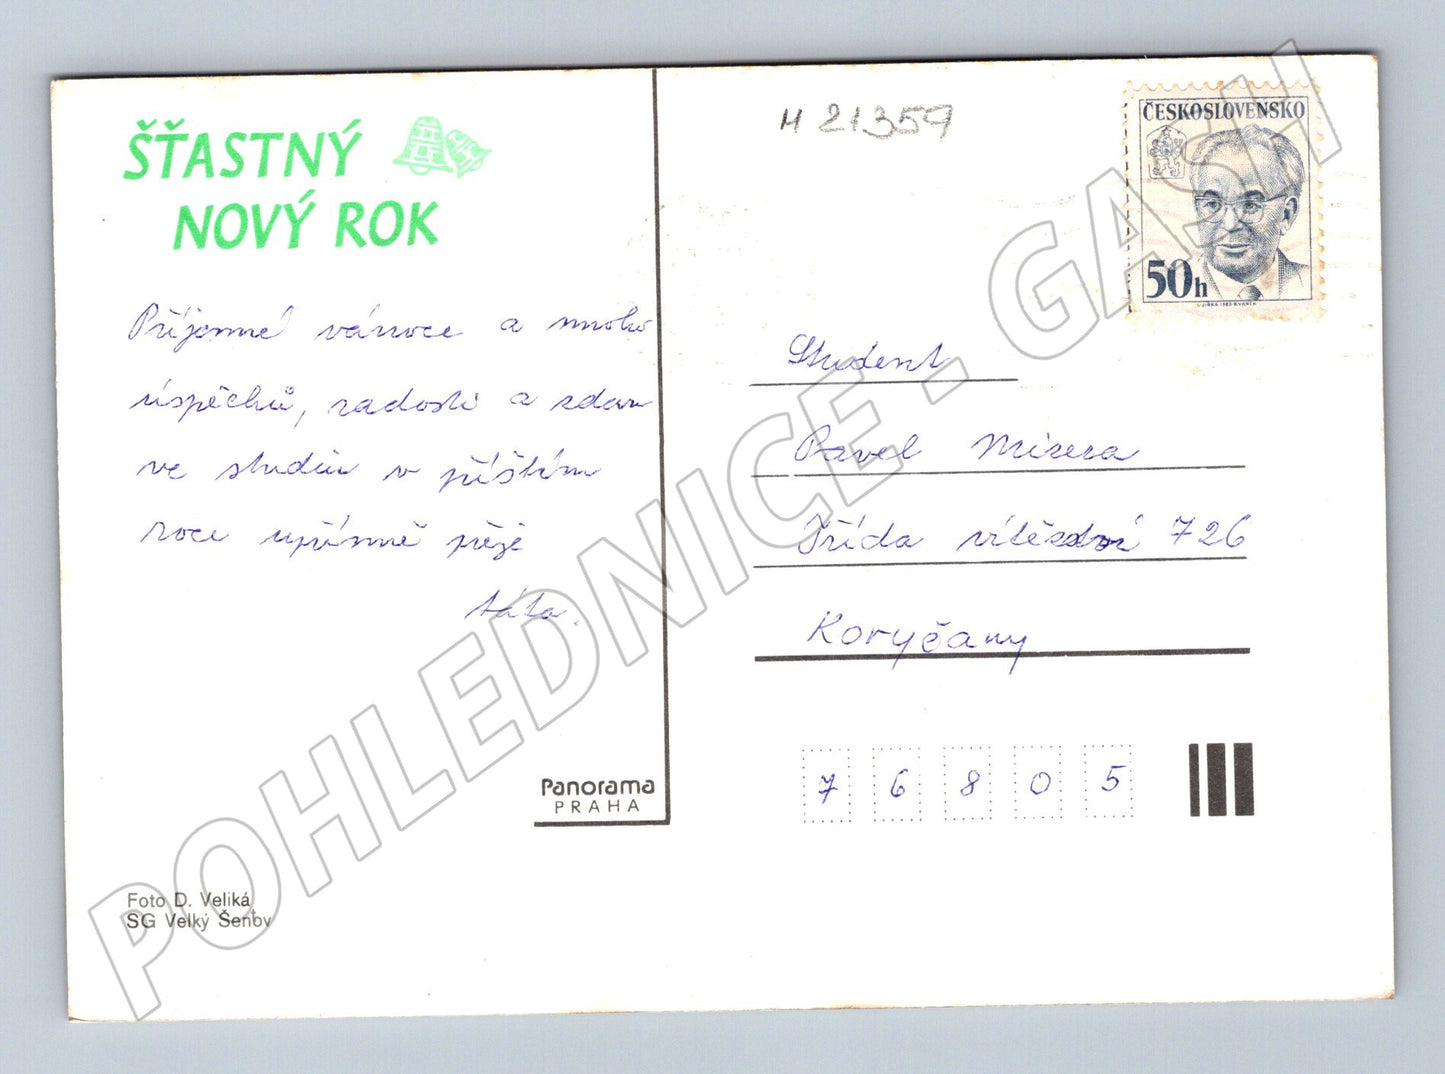 ŠŤASTNÝ
NOVÝ ROK
Příjemné vánoce a mnoho
úspěchů, radosti a zdaru
ve studiu v příštím
roce upřímně přeje
táta.
Panorama
PRAHA
Foto D. Veliká
SG Velký Šenov
M 21359
ČESKOSLOVENSKO
50h
Student
Pavel Mizera
Třída vítězství 726
Koryčany
76805
POHLEDNICE . GASH